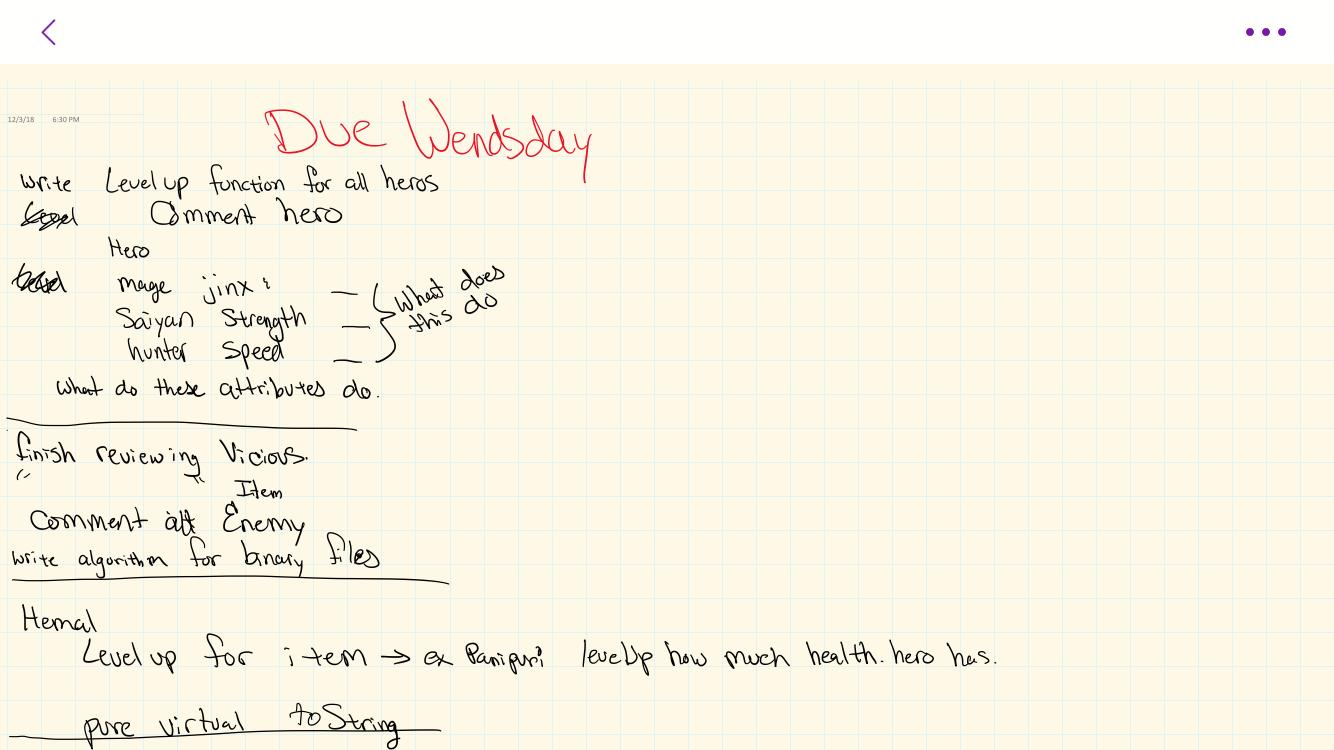 12/3/18 6:30 PM
Due Wendsday
Write Level up function for all heros
Comment hero
Hero
mage jinx :
Saiyan Strength
hunter Speed
What does this do
What do these attributes do.
finish reviewing Vicious.
" "
Item
Comment Enemy
write algorithm for binary files
Hemal
Level up for item → ex Panipuri levelUp how much health.hero has.
pure virtual toString